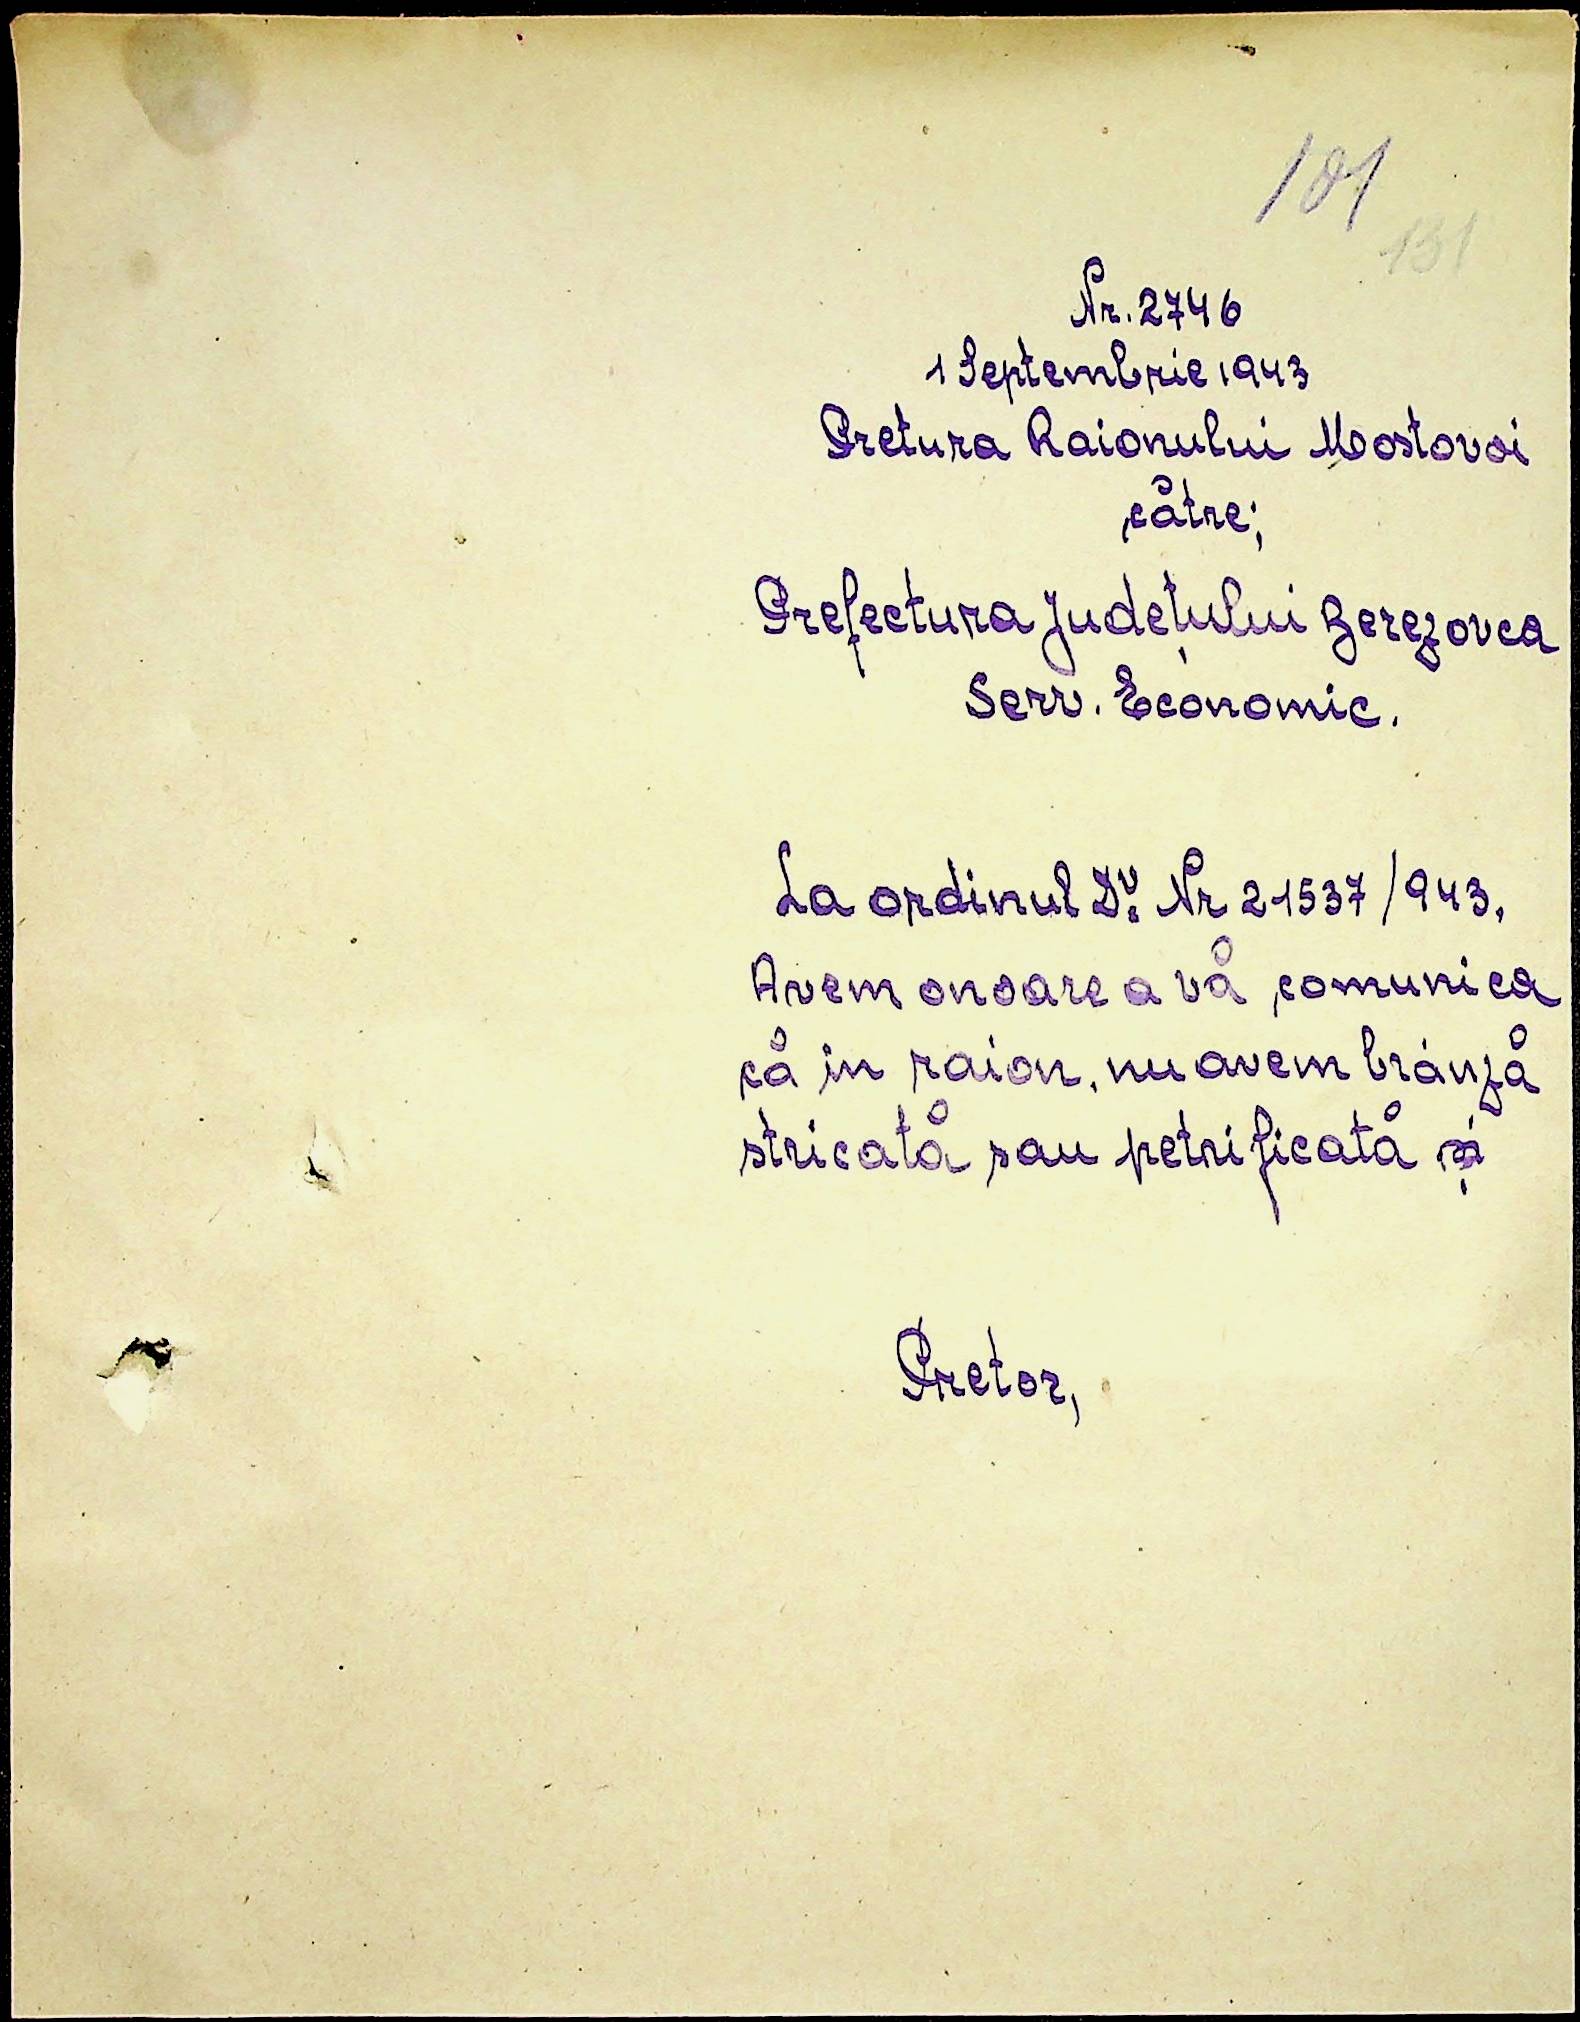 101
131
Nr. 2746
1 Septembrie 1943
Pretura Raionului Mostovoi
către;
Prefectura Județului Berezovca
Serv. Economic.
La ordinul Dv. Nr 21537/943.
Avem onoare a vă comunica
că in raion, nu avem brânză
stricată sau petrificată și
Pretor,